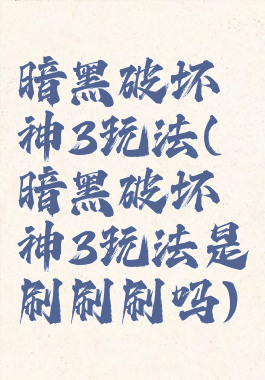 暗黑破坏
神3玩法(
暗黑破坏
神3玩法是
刷刷刷吗)